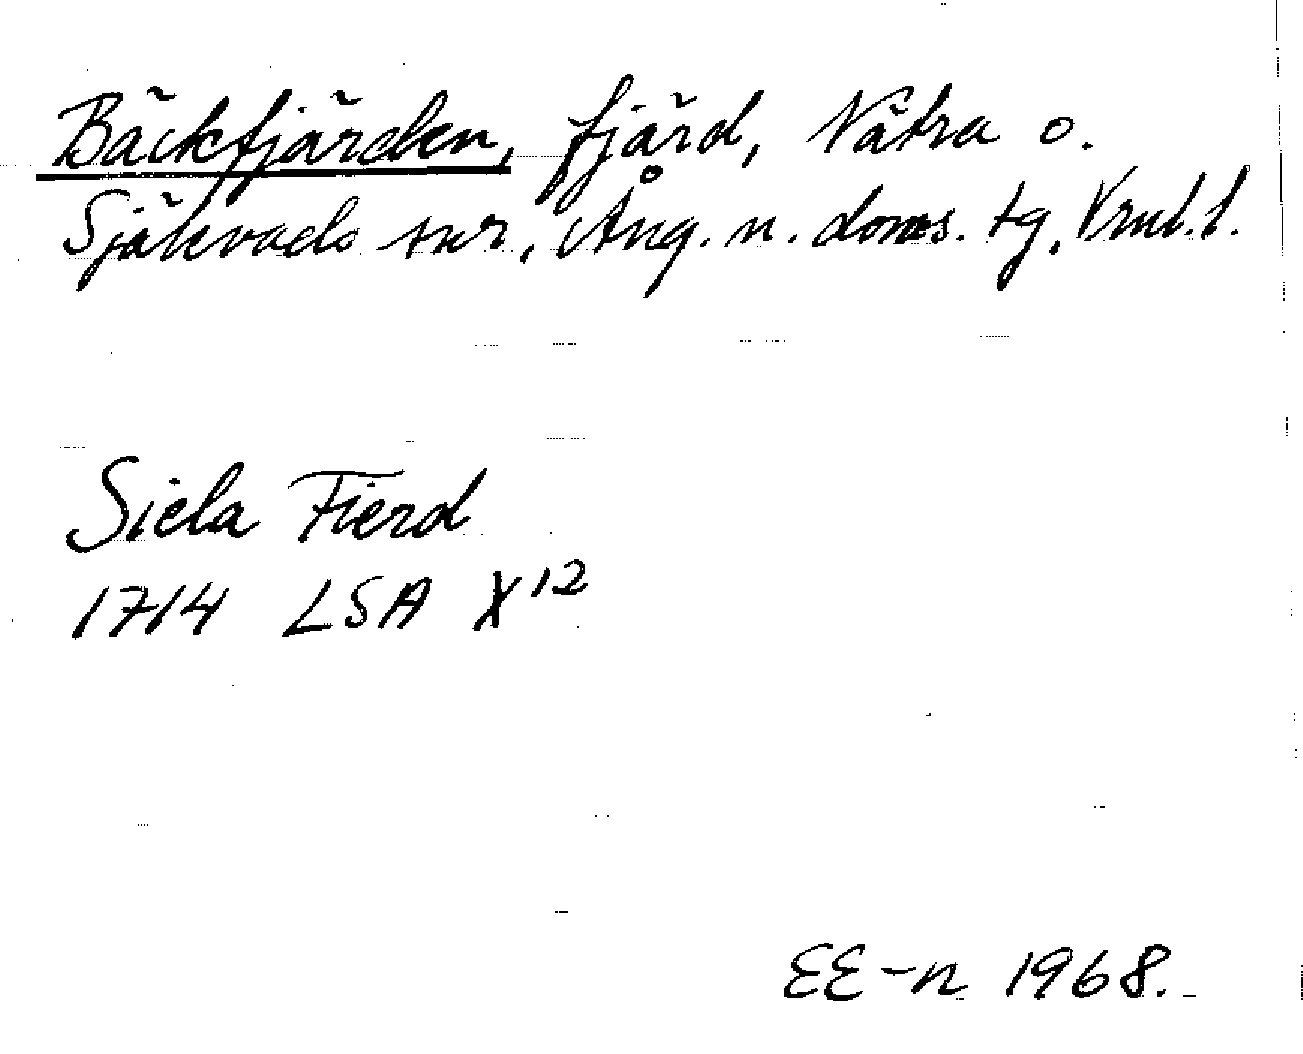 Bäckfjärden, fjärd, Nätra o.
Själevads snr, Ång. n. doms. tg, Vrml. l.
Siela Fierd
1714 LSA X12
EE-n 1968.